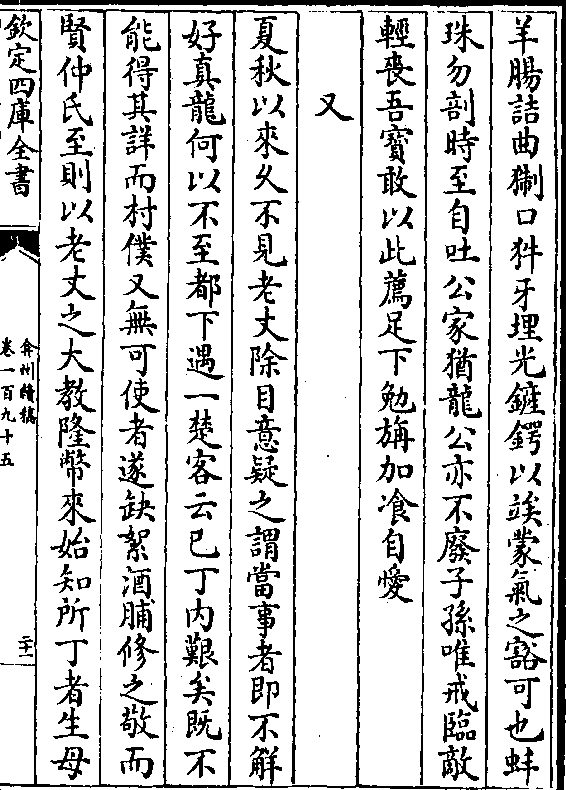 羊腸詰曲猘口狌牙埋光鏟鍔以竢蒙氣之豁可也蚌
珠勿剖時至自吐公家猶龍公亦不廢子孫唯戒臨敵
輕喪吾寶敢以此薦足下勉旃加飡自愛
又
夏秋以來乆不見老丈除目意疑之謂當事者即不觧
好真龍何以不至都下遇一楚客云已丁内艱矣既不
能得其詳而村僕又無可使者遂缺絮酒脯修之敬而
賢仲氏至則以老丈之大教隆幣來始知所丁者生母
欽定四庫全書
弇州續稿
卷一百九十五
二十一